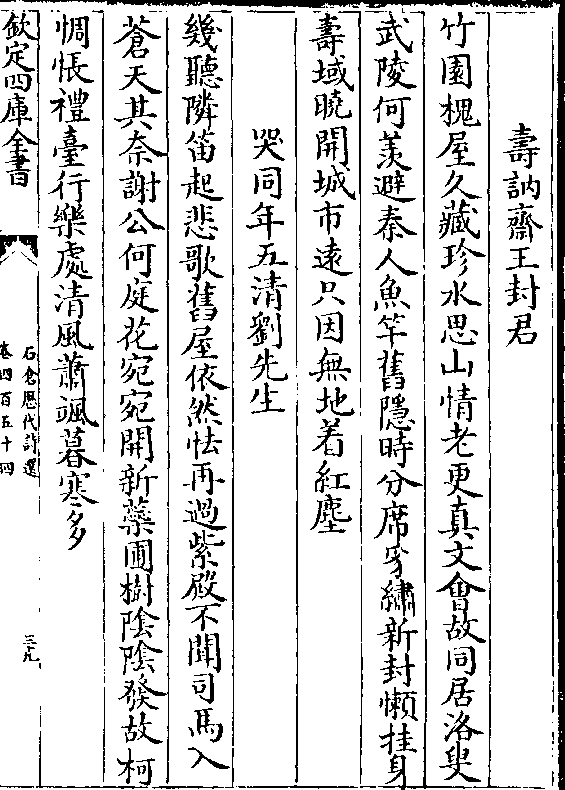 壽訥齋王封君
竹園槐屋久藏珍水思山情老更真文會故同居洛叟
武陵何羡避秦人魚竿舊隱時分席豸繡新封懶挂身
壽域曉開城市遠只因無地着紅塵
哭同年五清劉先生
幾聽隣笛起悲歌舊屋依然怯再過紫殿不聞司馬入
蒼天其奈謝公何庭花宛宛開新藥圃樹陰陰發故柯
惆悵禮臺行樂處清風蕭颯暮寒多
欽定四庫全書
石倉歷代詩選
卷四百五十四
三九